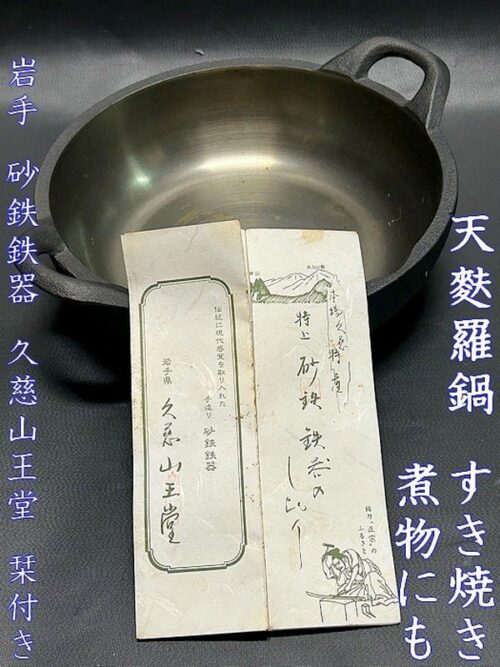 天麩羅鍋 すき焼き
煮物にも
岩手 砂鉄鉄器 久慈山王堂 栞付き
特上 砂鉄 鉄器の
しおり
銘刀"正宗"の
ふるさと
伝統に現代感覚を取り入れた
手造り 砂鉄鉄器
岩手県 久慈山王堂